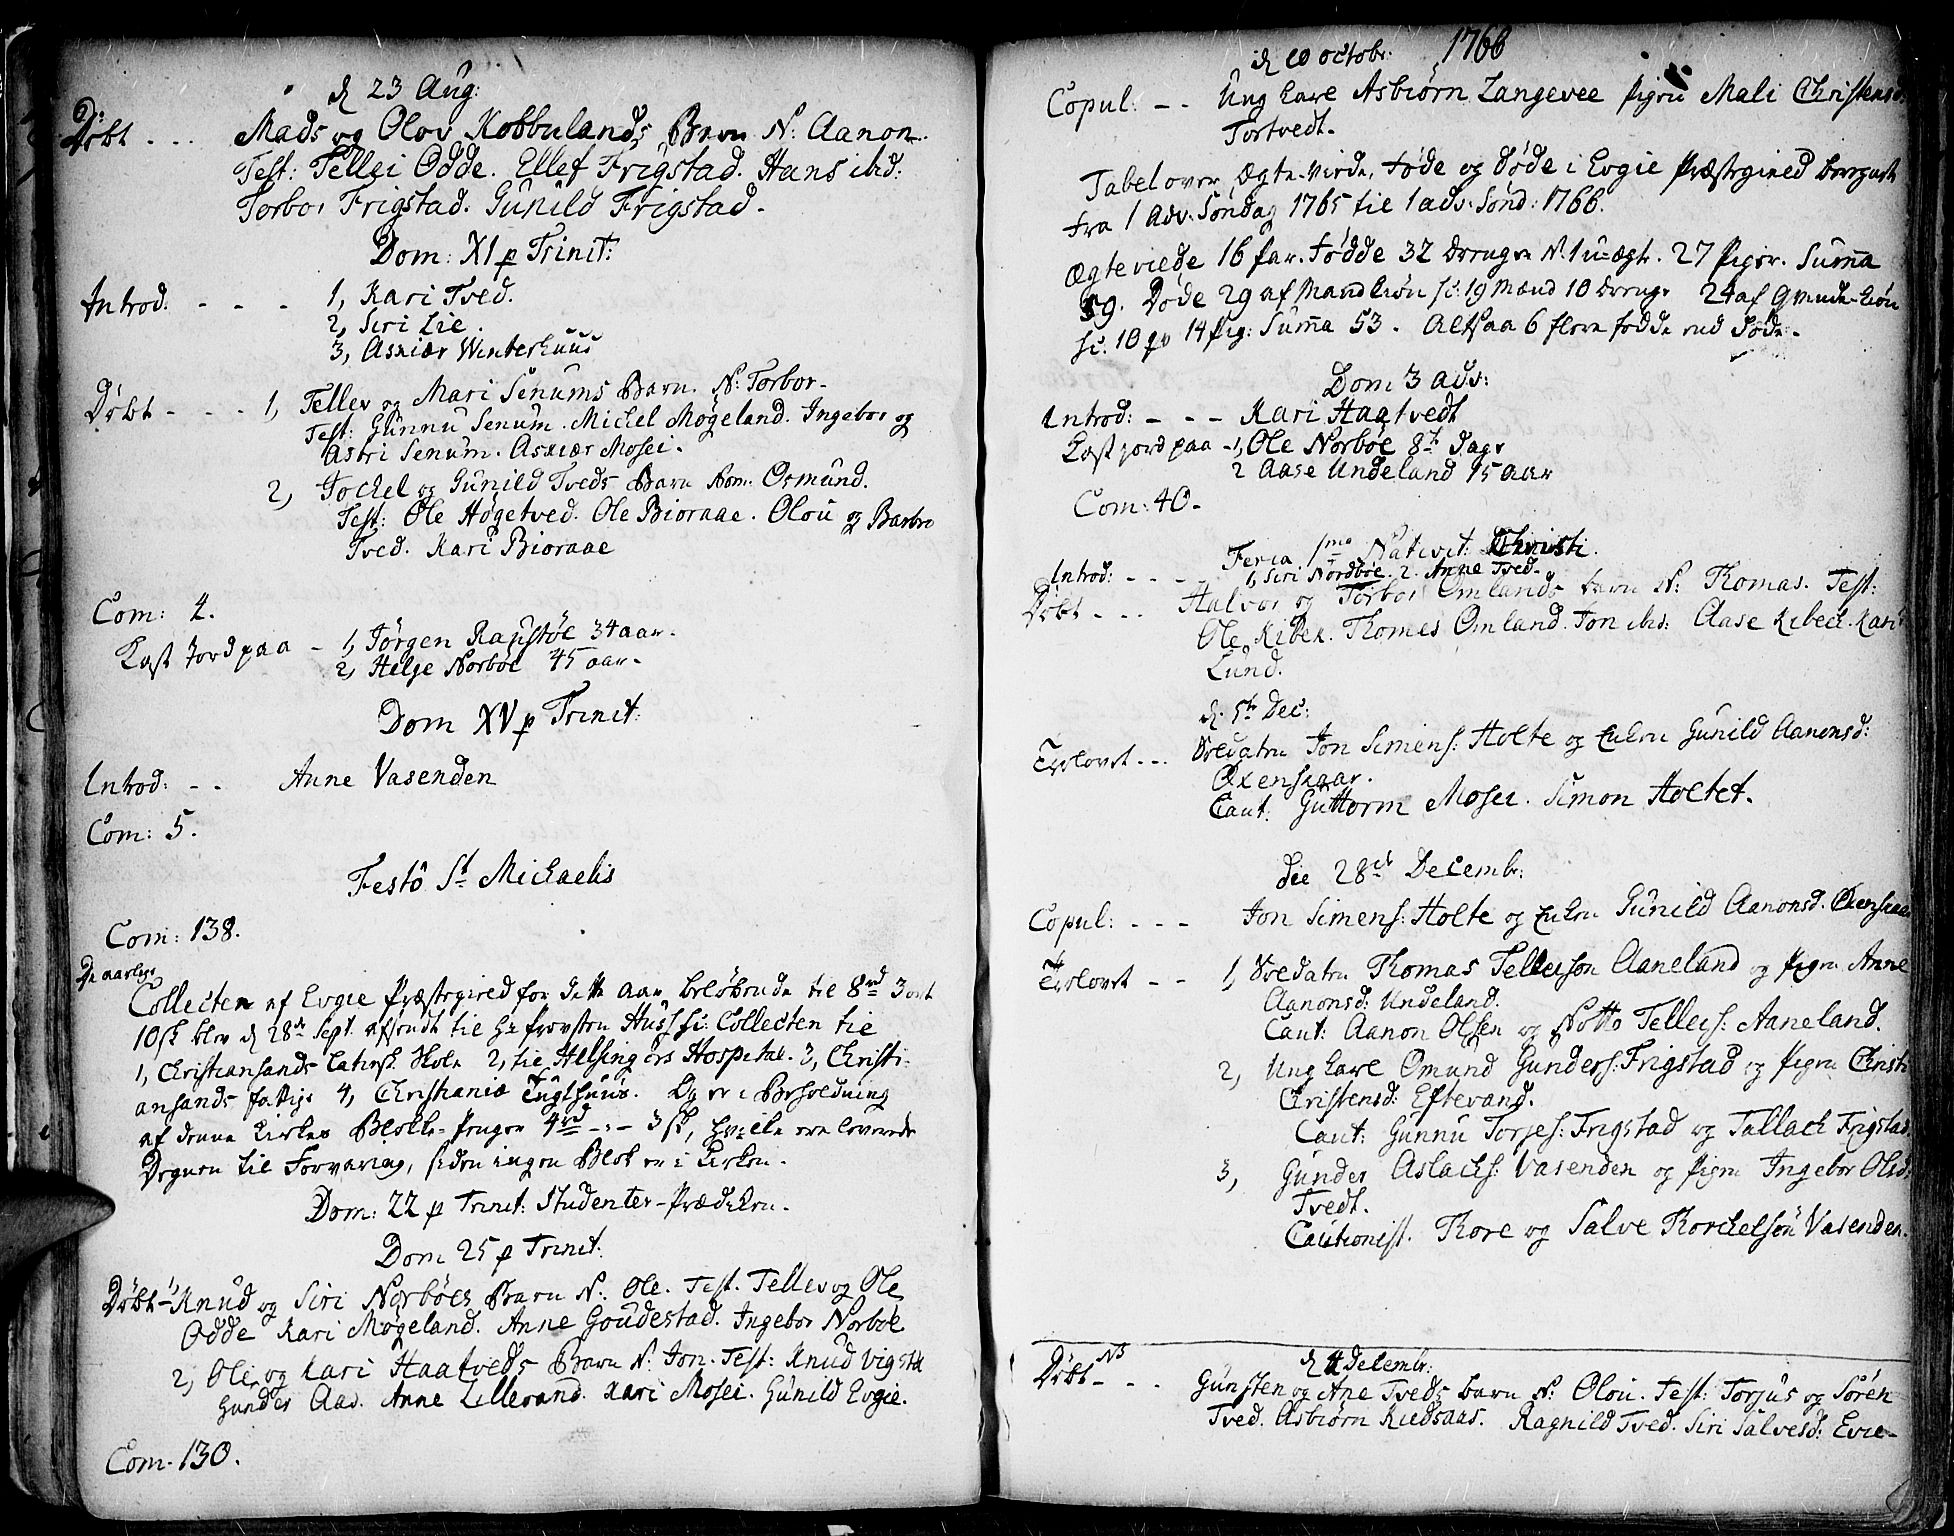 d 23 Aug:
Døbt - - - Mads og Olov Kobbulands Barn N: Aanon.
Test: Tellei Odde. Ellef Frigstad. Hans ibd:
Torbor Frigstad. Gunild Frigstad.
Dom: XI p Trinit:
Introd: - - - 1, Kari Tved.
2, Siri Lie.
3, Askiær Winterhuus
Døbt - - - 1, Tellev og Mari Senums Barn. N: Torbor-
Test: Gunnu Senum. Michel Møgeland. Ingebor og
Astri Senum. Askiær Mosei.
2, Tochel og Gunild Tveds Barn Nom: Osmund.
Test: Ole Høgetved. Ole Bioraae. Olou og Barbro
Tved. Kari Bioraae
Com: 4.
Kast Jord paa - 1, Jørgen Raustøe 34 aar.
2, Helge Norbøe 45 aar.
Dom XV p Trinit:
Introd: - - Anne Vasenden
Com: 5.
Festo St Michaelis
Com: 138.
De aarlige
Collecter af Evgie Præstegield for dette Aar beløbende til 8rd 3 ort
10 sk blev d 28de Sept. afsendt til Hr Provsten Huss sc: Collecten til
1, Christiansands Latinsk Skole 2, til Helsingørs Hospital. 3, Christi-
ansands fattige 4, Christianiæ Tugthuus. Og er i Beholdning
af denne Kirkes Blokke-Penger 4rd -:- 3 sk, hvilke ere leverede
Degnen til Forvaring, siden ingen Blok er i Kirken.
Dom: 22 p Trinit: Studenter-Prædiken.
Dom 25 p Trinit:
Døbt - 1, Knud og Siri Norbøes Barn N: Ole. Test. Tellev og Ole
Odde Kari Møgeland. Anne Goudestad. Ingebor Norbøe
2, Ole og Kari Haatveds Barn N: Jon. Test: Knud Vigstøl
Gunder Aas. Anne Lillerand. Kari Mosei. Gunild Evgie.
Com. 130.
1766
d 10 octobr:
Copul: - - Ung Karl Asbiørn Langevee Pigen Mali Christensd:
Tortvedt.
Tabel over Ægte-viede, Føde og Døde i Evgie Præstegield
fra 1 Adv. Søndag 1765 til 1 adv: Sønd: 1766.
Ægteviede 16 par. Fødde 32 Drenger N. 1 u-ægte. 27 Piger. Suma
59. Døde 29 af Mandkiøn sc: 19 Mænd 10 Drenge 24 af Qvinde-kiøn
sc: 10 qv 14 Pig: Suma 53. Altsaa 6 flere fødde end Døde.
Dom 3 adv:
Introd: - - - Kari Haatvedt
Kast jord paa - 1, Ole Norbøe 8te Dage
2 Aase Undeland 15 aar
Com: 40.
Feria 1ma Nativit: Christi.
Introd: - - - 1, Siri Nordbøe. 2. Anne Tved.
Døbt - - - Halvor og Torbor Omlands barn N: Thomas. Test:
Ole Kibek. Thomes Omland. Jon ibd: Aase Kibek. Kari
Lund.
d. 5te Dec:
Trolovet - - - Soldaten Jon Simens: Holte og Enken Gunild Aanonsd:
Oxensaar.
Caut: Guttorm Mosei. Simon Holtet.
die 28de Decembr:
Copul: - - - Jon Simens: Holte og Enken Gunild Aanonsd. Oxensaar
Trolovet - - 1, Soldaten Thomas Tellefson Aaneland og Pigen Anne
Aanonsd: Undeland.
Caut: Aanon Olsen og Notto Tellefs: Aaneland.
2, Ung karl Omund Gunders: Frigstad og Pigen Christi
Christensd: Eftevand.
Caut: Gunnu Torjes: Frigstad og Tallach Frigstad
3, Gunder Aslachs: Vasenden og Pigen Ingebor Olsd:
Tvedt.
Cautionist. Thore og Salve Thorchelson Vasenden.
d 4 Decembr:
Døbt - NB - Gunsten og Ane Tveds barn N: Olou. Test: Torjus og Søren
Tved. Asbiørn Kiedsaas. Ragnild Tved. Siri Salvesd: Evie-